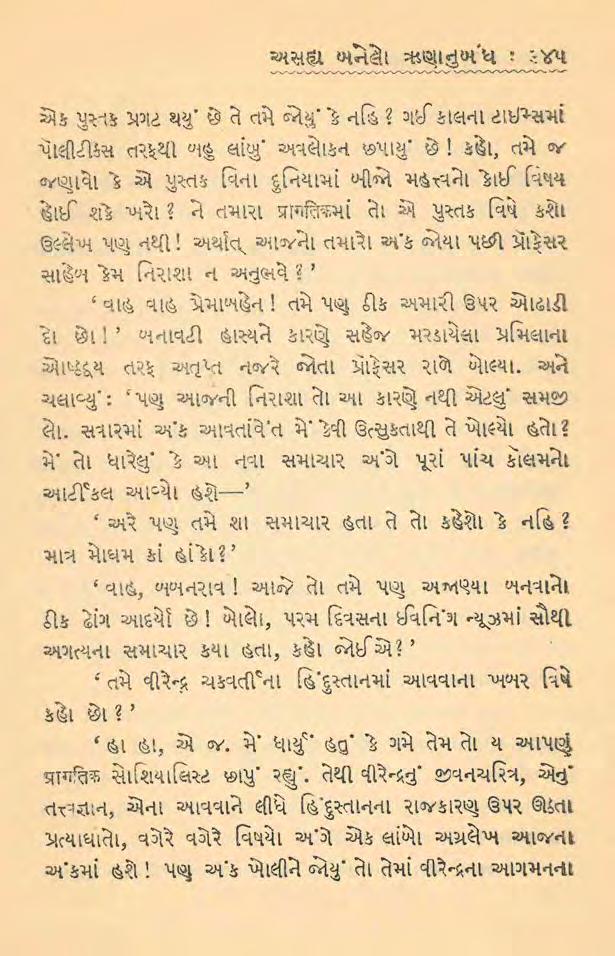 અસહ્ય બનેલો ઋણાનુબંધ : ૨૪૫
એક પુસ્તક પ્રગટ થયું છે તે તમે જોયું કે નહિ ? ગઈ કાલના ટાઈમ્સમાં
પોલીટીકસ તરફથી બહુ લાંબું અવલોકન છપાયું છે ! કહો, તમે જ
જણાવો કે એ પુસ્તક વિના દુનિયામાં બીજો મહત્ત્વનો કોઈ વિષય
હોઈ શકે ખરો ? ને તમારા प्रागतिकમાં તો એ પુસ્તક વિષે કશો
ઉલ્લેખ પણ નથી ! અર્થાત્ આજનો તમારો અંક જોયા પછી પ્રૉફેસર
સાહેબ કેમ નિરાશા ન અનુભવે ? ’
‘ વાહ વાહ પ્રેમાબહેન ! તમે પણ ઠીક અમારી ઉપર ઓઢાડી
દો છો ! ’ બનાવટી હાસ્યને કારણે સહેજ મરડાયેલા પ્રમિલાના
ઓષ્ઠદ્વય તરફ અતૃપ્ત નજરે જોતા પ્રૉફેસર રાળે બોલ્યા. અને
ચલાવ્યું : ‘ પણ આજની નિરાશા તો આ કારણે નથી એટલું સમજી
લો. સવારમાં અંક આવતાંવેંત મેં કેવી ઉત્સુકતાથી તે ખોલ્યો હતો ?
મેં તો ધારેલું કે આ નવા સમાચાર અંગે પૂરાં પાંચ કૉલમનો
આર્ટીકલ આવ્યો હશે—’
‘ અરે પણ તમે શા સમાચાર હતા તે તો કહેશો કે નહિ ?
માત્ર મોઘમ કાં હાંકો ? ’
‘ વાહ, બબનરાવ ! આજે તો તમે પણ અજાણ્યા બનવાનો
ઠીક ઢોંગ આદર્યો છે ! બોલો, પરમ દિવસના ઈવનિંગ ન્યૂઝમાં સૌથી
અગત્યના સમાચાર કયા હતા, કહો જોઈએ ? ’
‘ તમે વીરેન્દ્ર ચક્રવર્તીના હિંદુસ્તાનમાં આવવાના ખબર વિષે
કહો છો ? ’
‘ હા હા, એ જ. મેં ધાર્યું હતું કે ગમે તેમ તો ય આપણું
प्रागतिक સોશિયાલિસ્ટ છાપું રહ્યું. તેથી વીરેન્દ્રનું જીવનચરિત્ર, એનું
તત્ત્વજ્ઞાન, એના આવવાને લીધે હિંદુસ્તાનના રાજકારણ ઉપર ઊઠતા
પ્રત્યાઘાતો, વગેરે વગેરે વિષયો અંગે એક લાંબો અગ્રલેખ આજના
અંકમાં હશે ! પણ અંક ખોલીને જોયું તો તેમાં વીરેન્દ્રના આગમનના